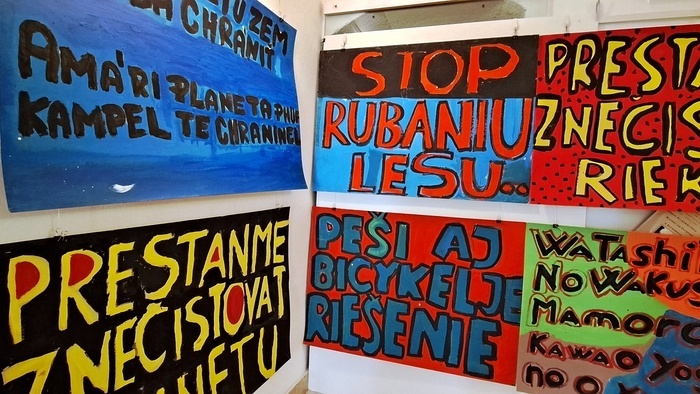 ZEM
CHRÁNIŤ
AMA'RI PLANETA PHU
KAMPEL TE CHRANINEL
STOP
RUBANIU
LESU..
PRESTA
ZNEČIS
RIEK
PRESTANME
ZNEČISTOVAT
NETU
PEŠI AJ
BICYKELJE
RIEŠENIE
WATASHI
NO WAKU
MAMORO
KAWA O YO
NO O